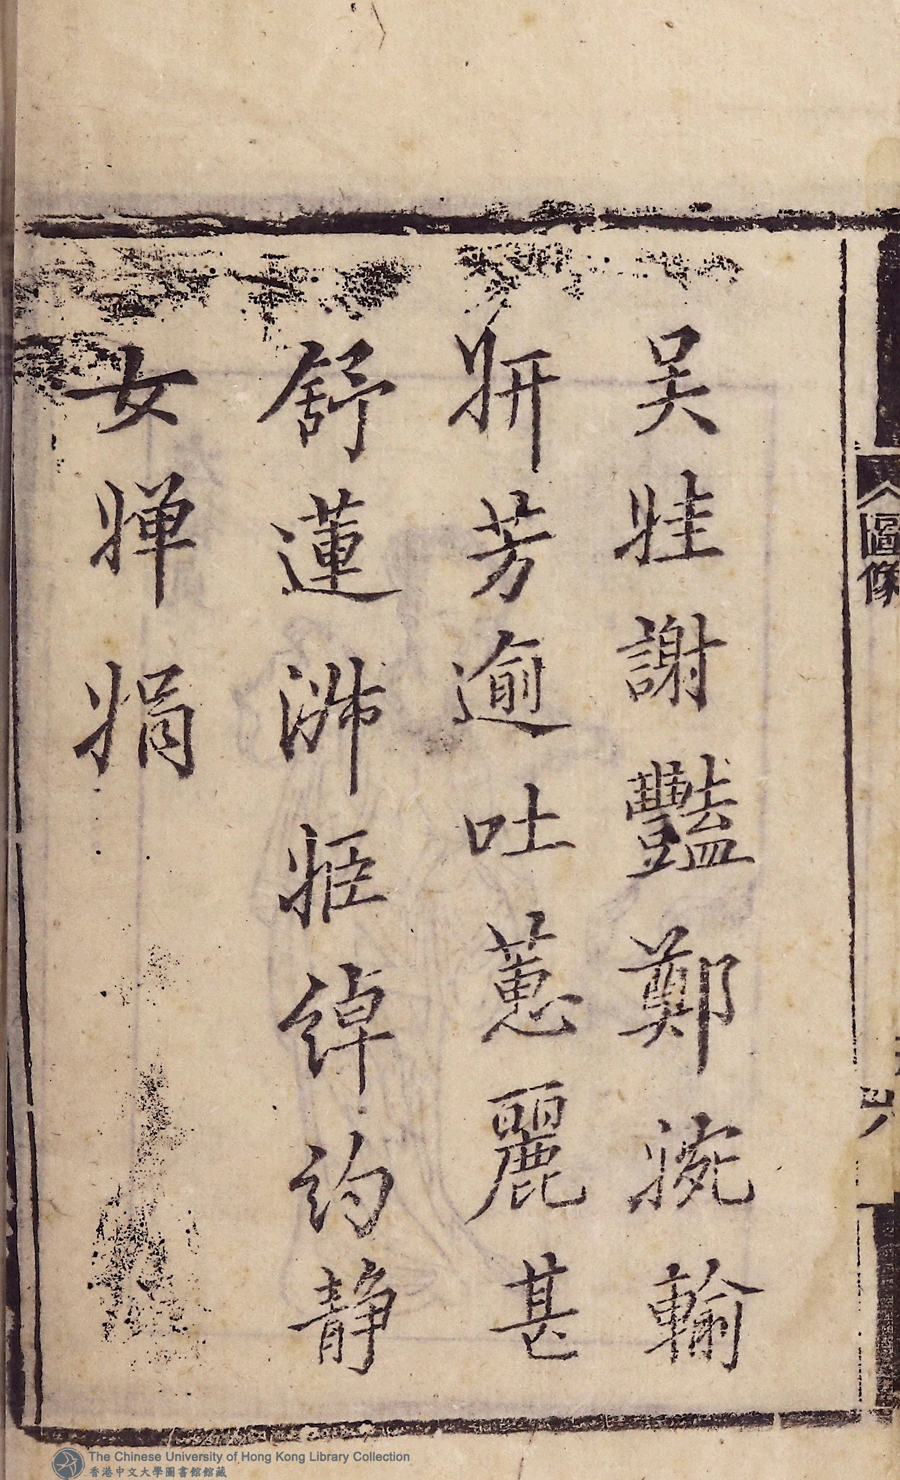 吴娃謝豔鄭婉輸
妍芳逾吐蕙麗甚
舒蓮姬綽約静
女嬋娟
圖像
The Chinese University of Hong Kong Library Collection
香港中文大學圖書館館藏